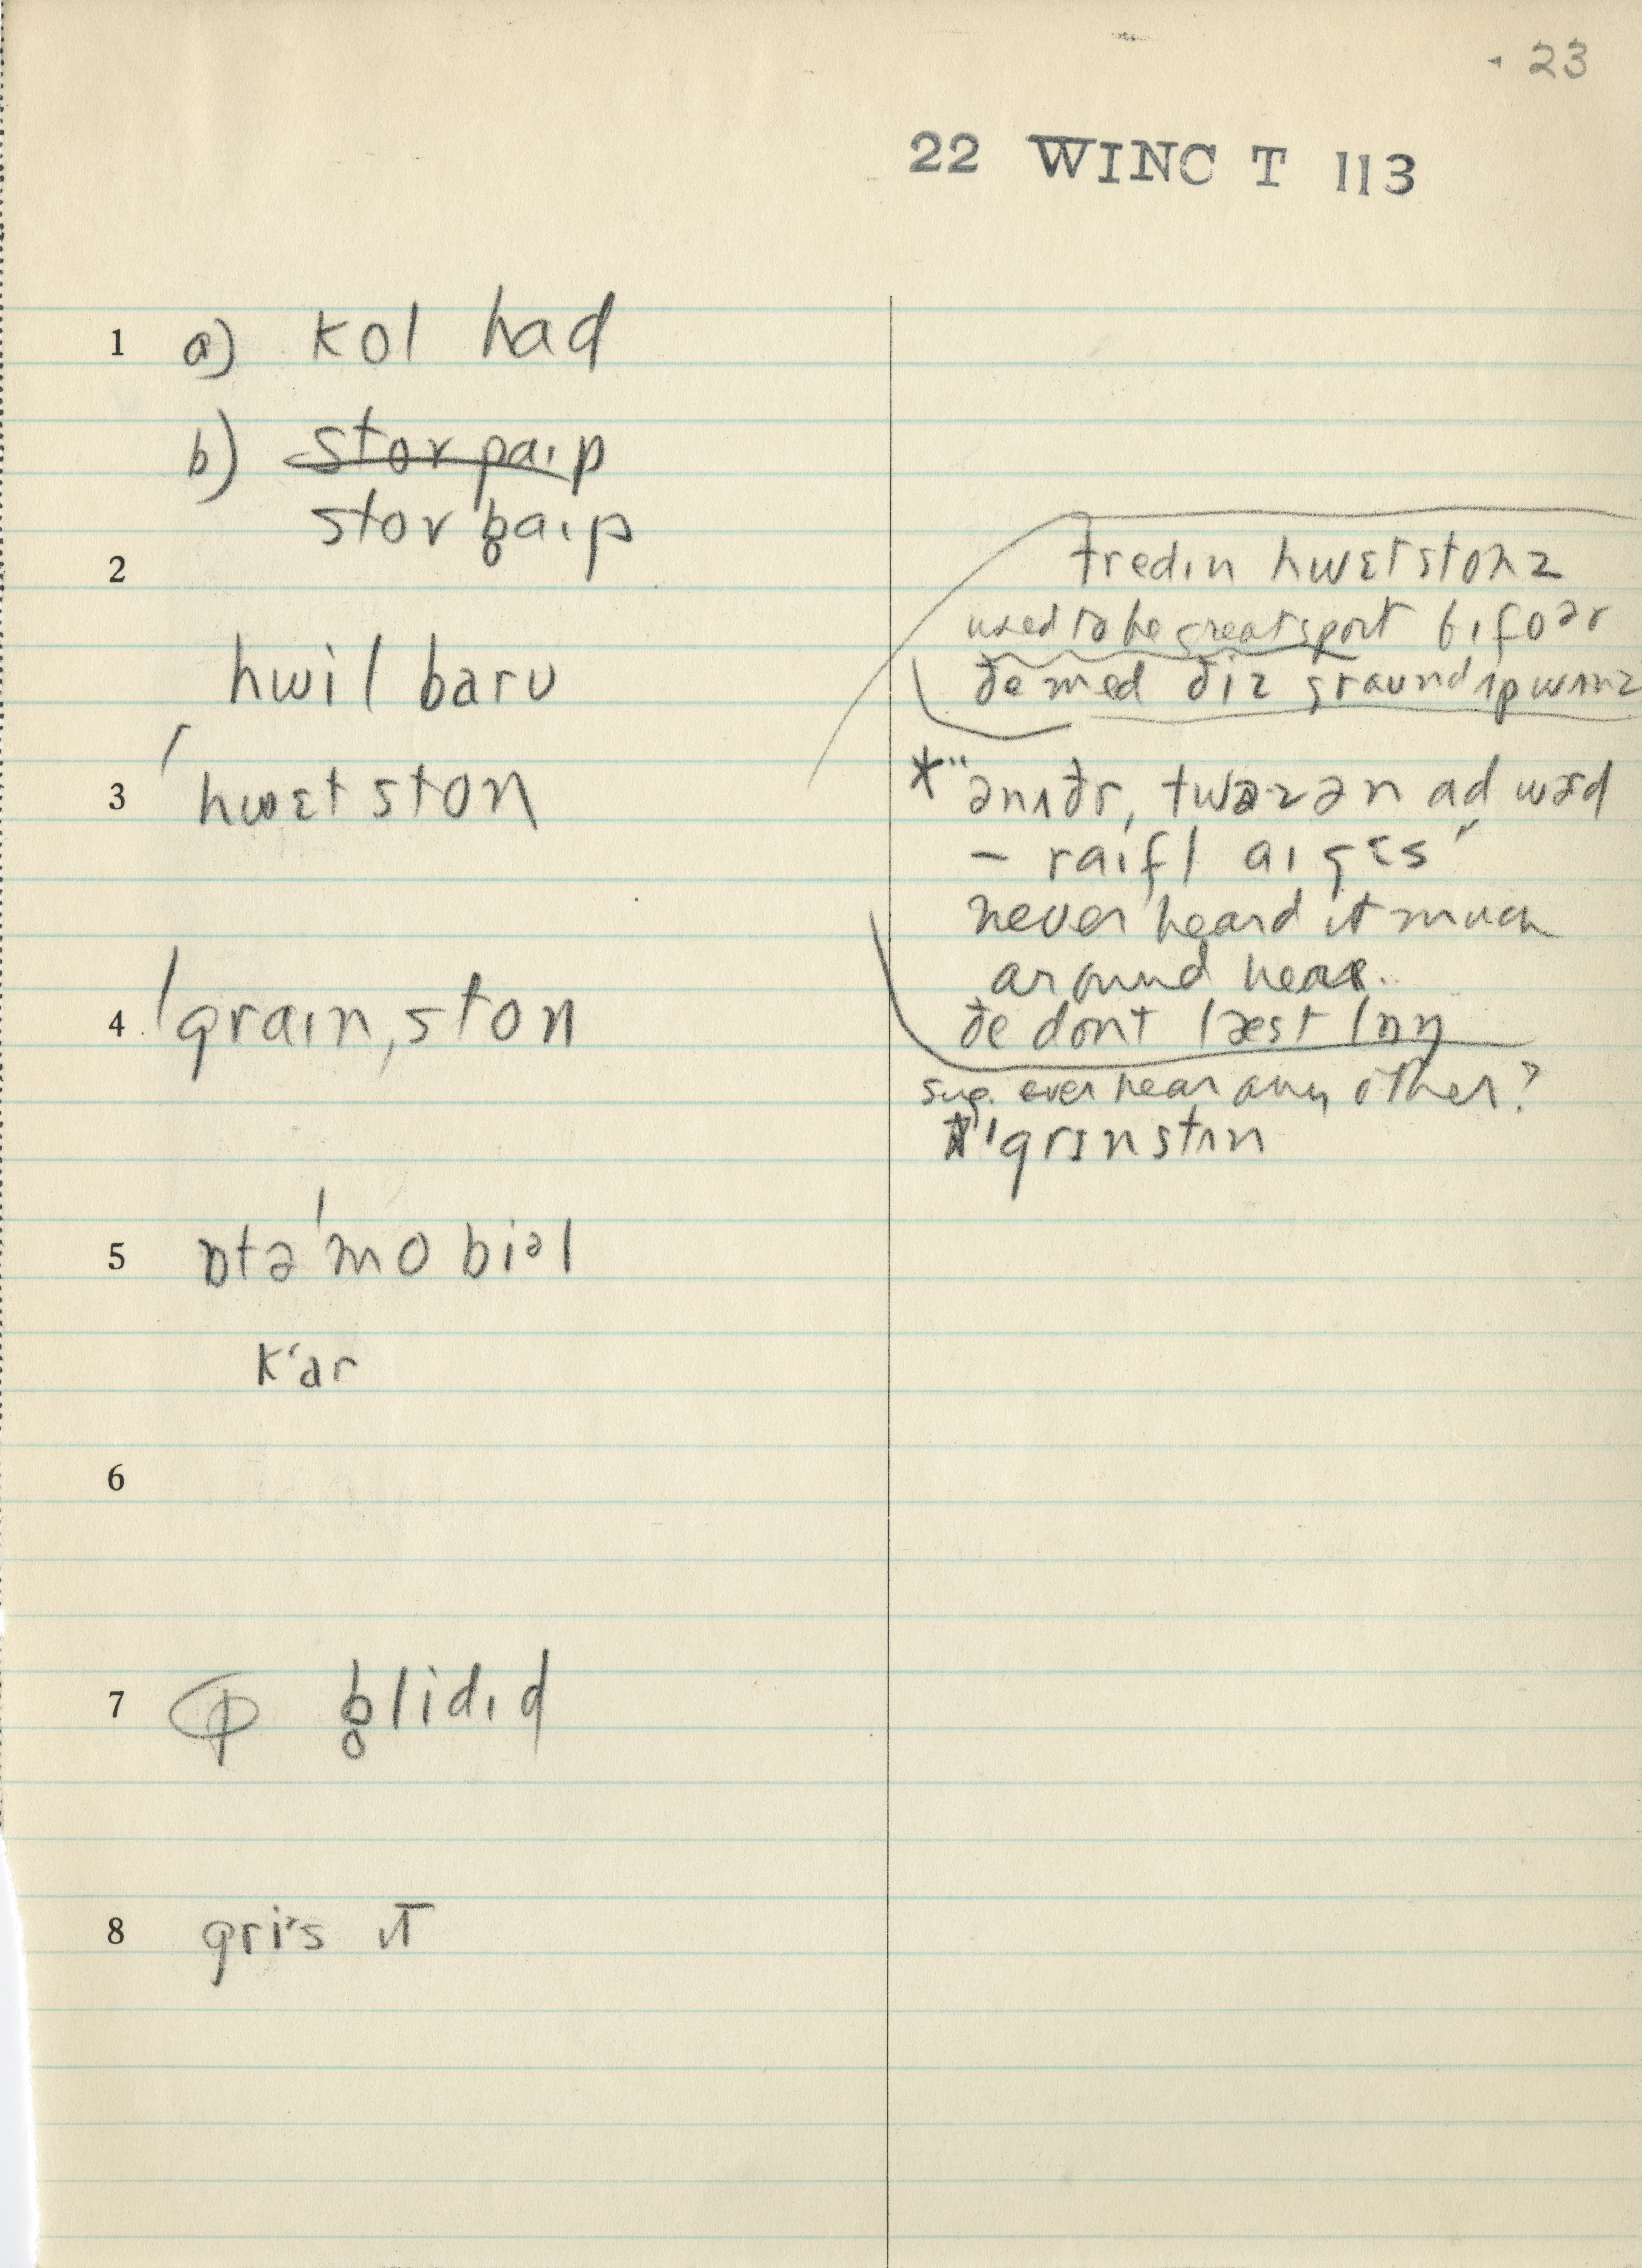 23
22 WINC T 113
1 a) kol had
b) ~~stor paɪp~~
stor b̥aɪp
2
hwil barʊ
3 ˈhwɛt ston
4 ˈgraɪnˌston
5 ɒtəˈmobiəl
kʻar
6
7 b̥lidɪd
8 griˑs ɪt
tredɪn hwɛtstonz
used to be great sport bɪfoər
ðe med ðiz graund ʌp wʌnz
* "ənʌðr, twəzən ad wərd
– raɪfl aɪ gɛs"
never heard it much
around here.
ðe dont læst lɒŋ
sug. ever hear any other?
ˈgrɪnstʌn